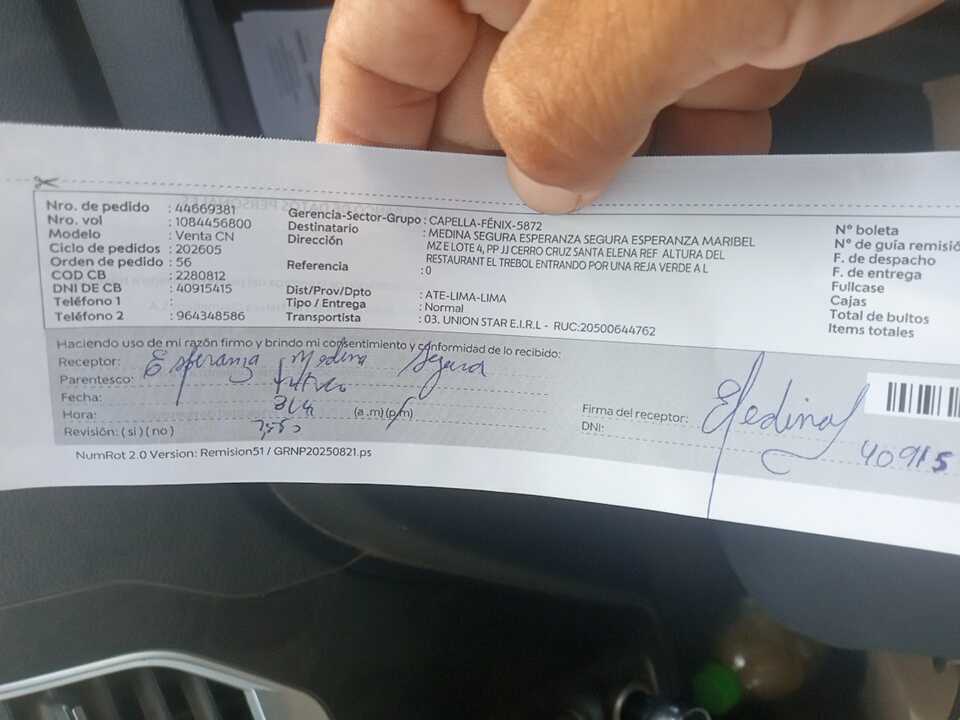 Nro. de pedido : 44669381
Nro. vol : 1084456800
Modelo : Venta CN
Ciclo de pedidos : 202605
Orden de pedido : 56
COD CB : 2280812
DNI DE CB : 40915415
Teléfono 1 :
Teléfono 2 : 964348586
Gerencia-Sector-Grupo : CAPELLA-FÉNIX-5872
Destinatario : MEDINA SEGURA ESPERANZA SEGURA ESPERANZA MARIBEL
Dirección MZ E LOTE 4, PP JJ CERRO CRUZ SANTA ELENA REF ALTURA DEL
RESTAURANT EL TREBOL ENTRANDO POR UNA REJA VERDE A L
Referencia : 0
Dist/Prov/Dpto : ATE-LIMA-LIMA
Tipo / Entrega : Normal
Transportista : 03. UNION STAR E.I.R.L - RUC:20500644762
N° boleta
N° de guía remisió
F. de despacho
F. de entrega
Fullcase
Cajas
Total de bultos
Items totales
Haciendo uso de mi razón firmo y brindo mi consentimiento y conformidad de lo recibido:
Receptor: Esperanza Medina Segura
Parentesco:
Fecha: 314
Hora: (a.m) (p.m)
Revisión: ( si ) ( no )
Firma del receptor: EMedina
DNI: 40915
NumRot 2.0 Version: Remision51 / GRNP20250821.ps